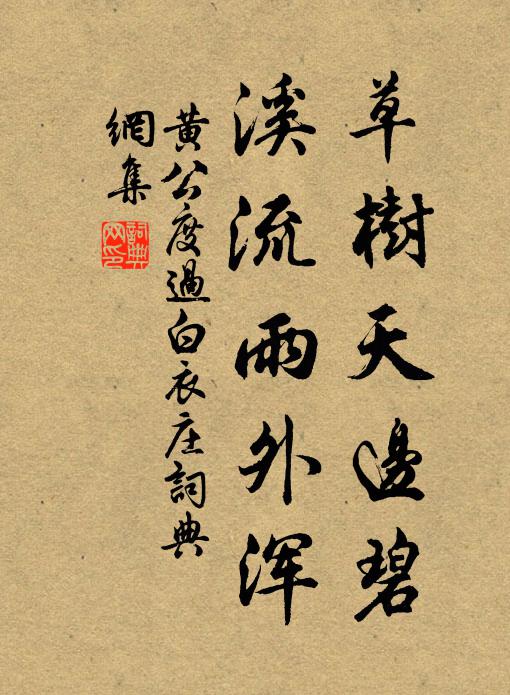 草樹天邊碧
溪流雨外浑
黃公度過白衣庄詞典
網集
詞典
网印